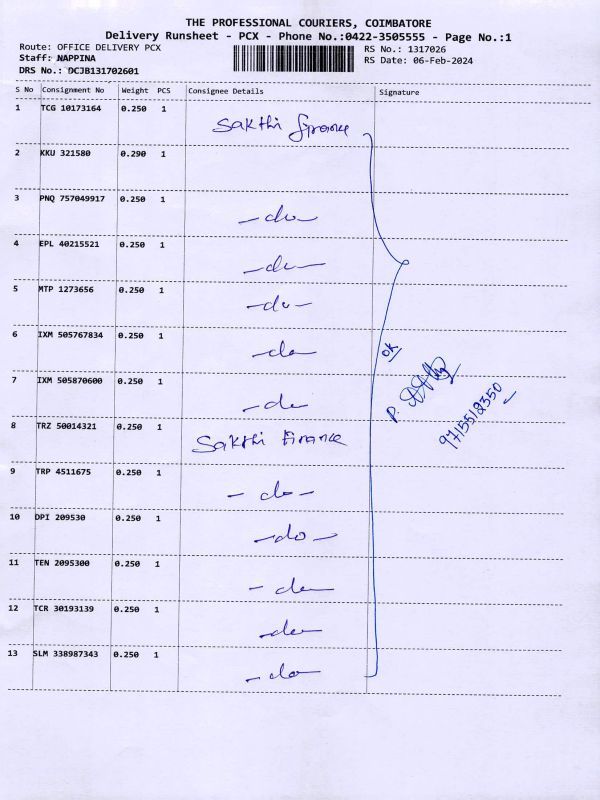 THE PROFESSIONAL COURIERS, COIMBATORE
Delivery Runsheet - PCX - Phone No.:0422-3505555 - Page No.:1
Route: OFFICE DELIVERY PCX RS No.: 1317026
Staff: NAPPINA RS Date: 06-Feb-2024
DRS No.: DCJB131702601
S No Consignment No Weight PCS Consignee Details Signature
1 TCG 10173164 0.250 1 Sakthi finance
2 KKU 321580 0.290 1
3 PNQ 757049917 0.250 1 -do-
4 EPL 40215521 0.250 1 -do-
5 MTP 1273656 0.250 1 -do-
6 IXM 505767834 0.250 1 -do-
ok
7 IXM 505870600 0.250 1 -do-
P.
9715512350
8 TRZ 50014321 0.250 1 Sakthi Finance
9 TRP 4511675 0.250 1 -do-
10 DPI 209530 0.250 1 -do-
11 TEN 2095300 0.250 1 -do-
12 TCR 30193139 0.250 1 -do-
13 SLM 338987343 0.250 1 -do-